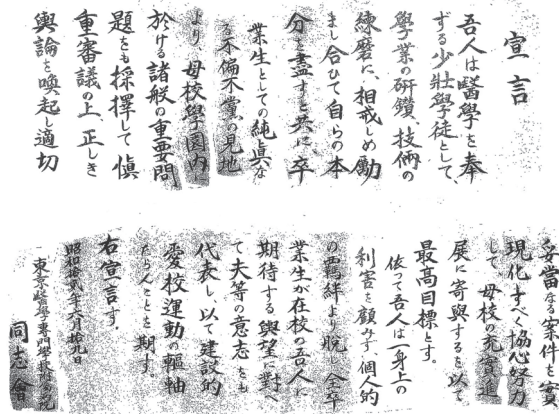 宣言
吾人は醫學を奉
ずる少壯學徒として、
學業の研鑽、技術の
練磨に、相戒しめ勵
まし合ひて自らの本
分を盡すと共に、卒
業生としての純眞な
る不偏不黨の見地
より、母校學園内
於ける諸般の重要問
題をも採擇して愼
重審議の上、正しき
輿論を喚起し適切
妥當なる案件を實
現化すべく協心努力
して母校の充實進
展に寄與するを以て
最高目標とす。
依つて吾人は一身上の
利害を顧みず、個人的
の羈絆より脱し全卒
業生が在校の吾人に
期待する輿望に對へ
て夫等の意志をも
代表し、以て建設的
愛校運動の樞軸
たらんことを期す。
右宣言す.
昭和拾貳年六月拾九日
東京醫學專門學校
同志會